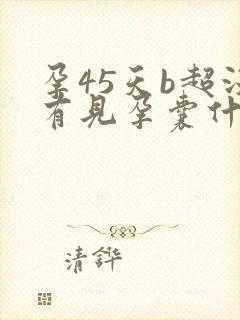 孕45天b超没
有见孕囊什
清铧